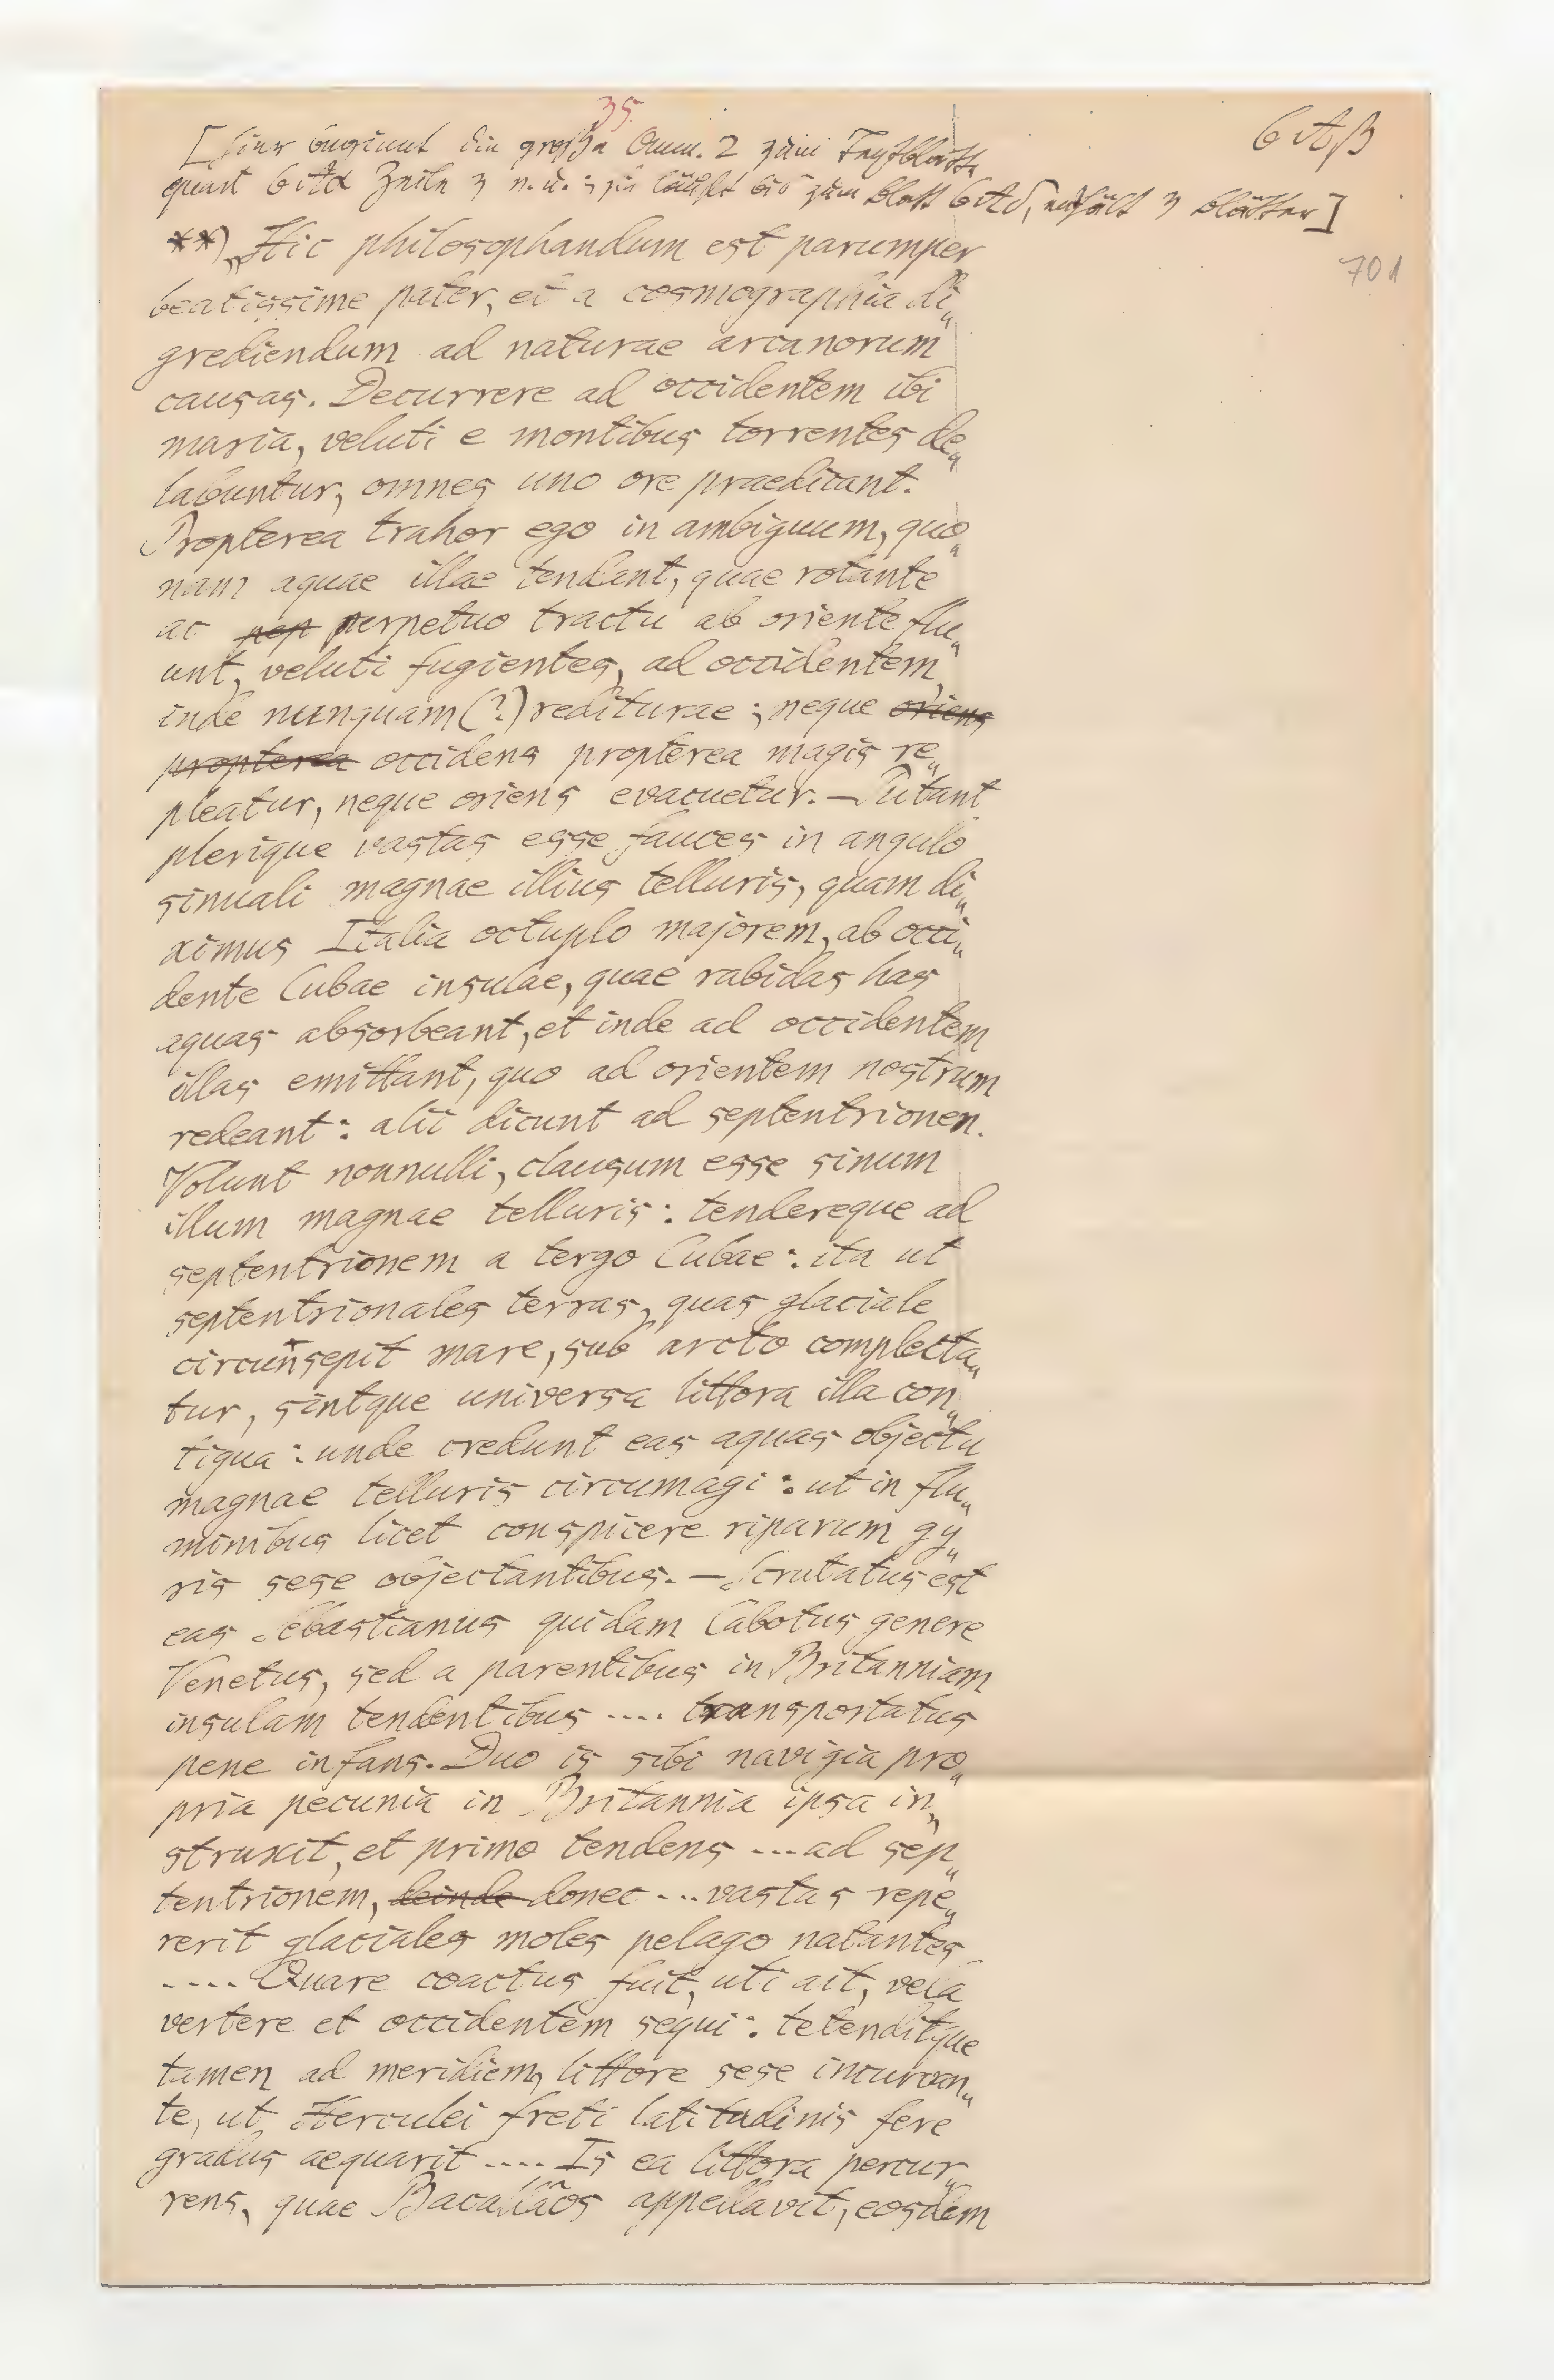 35.
6 A β
[Hier beginnt die große Anm. 2 zum Textblatt
quart 6 A α Zeile 3 v. u.; sie läuft bis zum Blatt 6 A δ, enthält 3 Blätter]
701
**) „Hic philosophandum est parumper
beatissime pater, et a cosmographia di„
grediendum ad naturae arcanorum
causas. Decurrere ad occidentem ibi
maria, veluti e montibus torrentes de„
labuntur, omnes uno ore praedicant.
Propterea trahor ego in ambiguum, quo„
nam aquae illae tendant, quae rotante
ac pep perpetuo tractu ab oriente flu„
unt, veluti fugientes, ad occidentem,
inde nunquam (?) rediturae; neque oriens
propterea occidens propterea magis re„
pleatur, neque oriens evacuetur. — Putant
plerique vastas esse fauces in angulo
sinuali magnae illius telluris, quam di„
ximus Italia octuplo majorem, ab occi„
dente Cubae insulae, quae rabidas has
aquas absorbeant, et inde ad occidentem
illas emittant, quo ad orientem nostrum
redeant: alii dicunt ad septentrionem.
Volunt nonnulli, clausum esse sinum
illum magnae telluris: tendereque ad
septentrionem a tergo Cubae: ita ut
septentrionales terras, quas glaciale
circunsepit mare, sub arcto complecta„
tur, sintque universa littora illa con„
tigua: unde credunt eas aquas objectu
magnae telluris circumagi: ut in flu„
minibus licet conspicere riparum gy„
ris sese objectantibus. — Scrutatus est
eas Sebastianus quidam Cabotus genere
Venetus, sed a parentibus in Britanniam
insulam tendentibus .... transportatus
pene infans. Duo is sibi navigia pro„
pria pecunia in Britannia ipsa in„
struxit, et primo tendens ... ad sep„
tentrionem, deinde donec ... vastas repe„
rerit glaciales moles pelago natantes
.... Quare coactus fuit, uti ait, vela
vertere et occidentem sequi: tetenditque
tamen ad meridiem, littore sese incurvan„
te, ut Herculei freti latitudinis fere
gradus aequarit .... Is ea littora percur„
rens, quae Bacallãos appellavit, eosdem